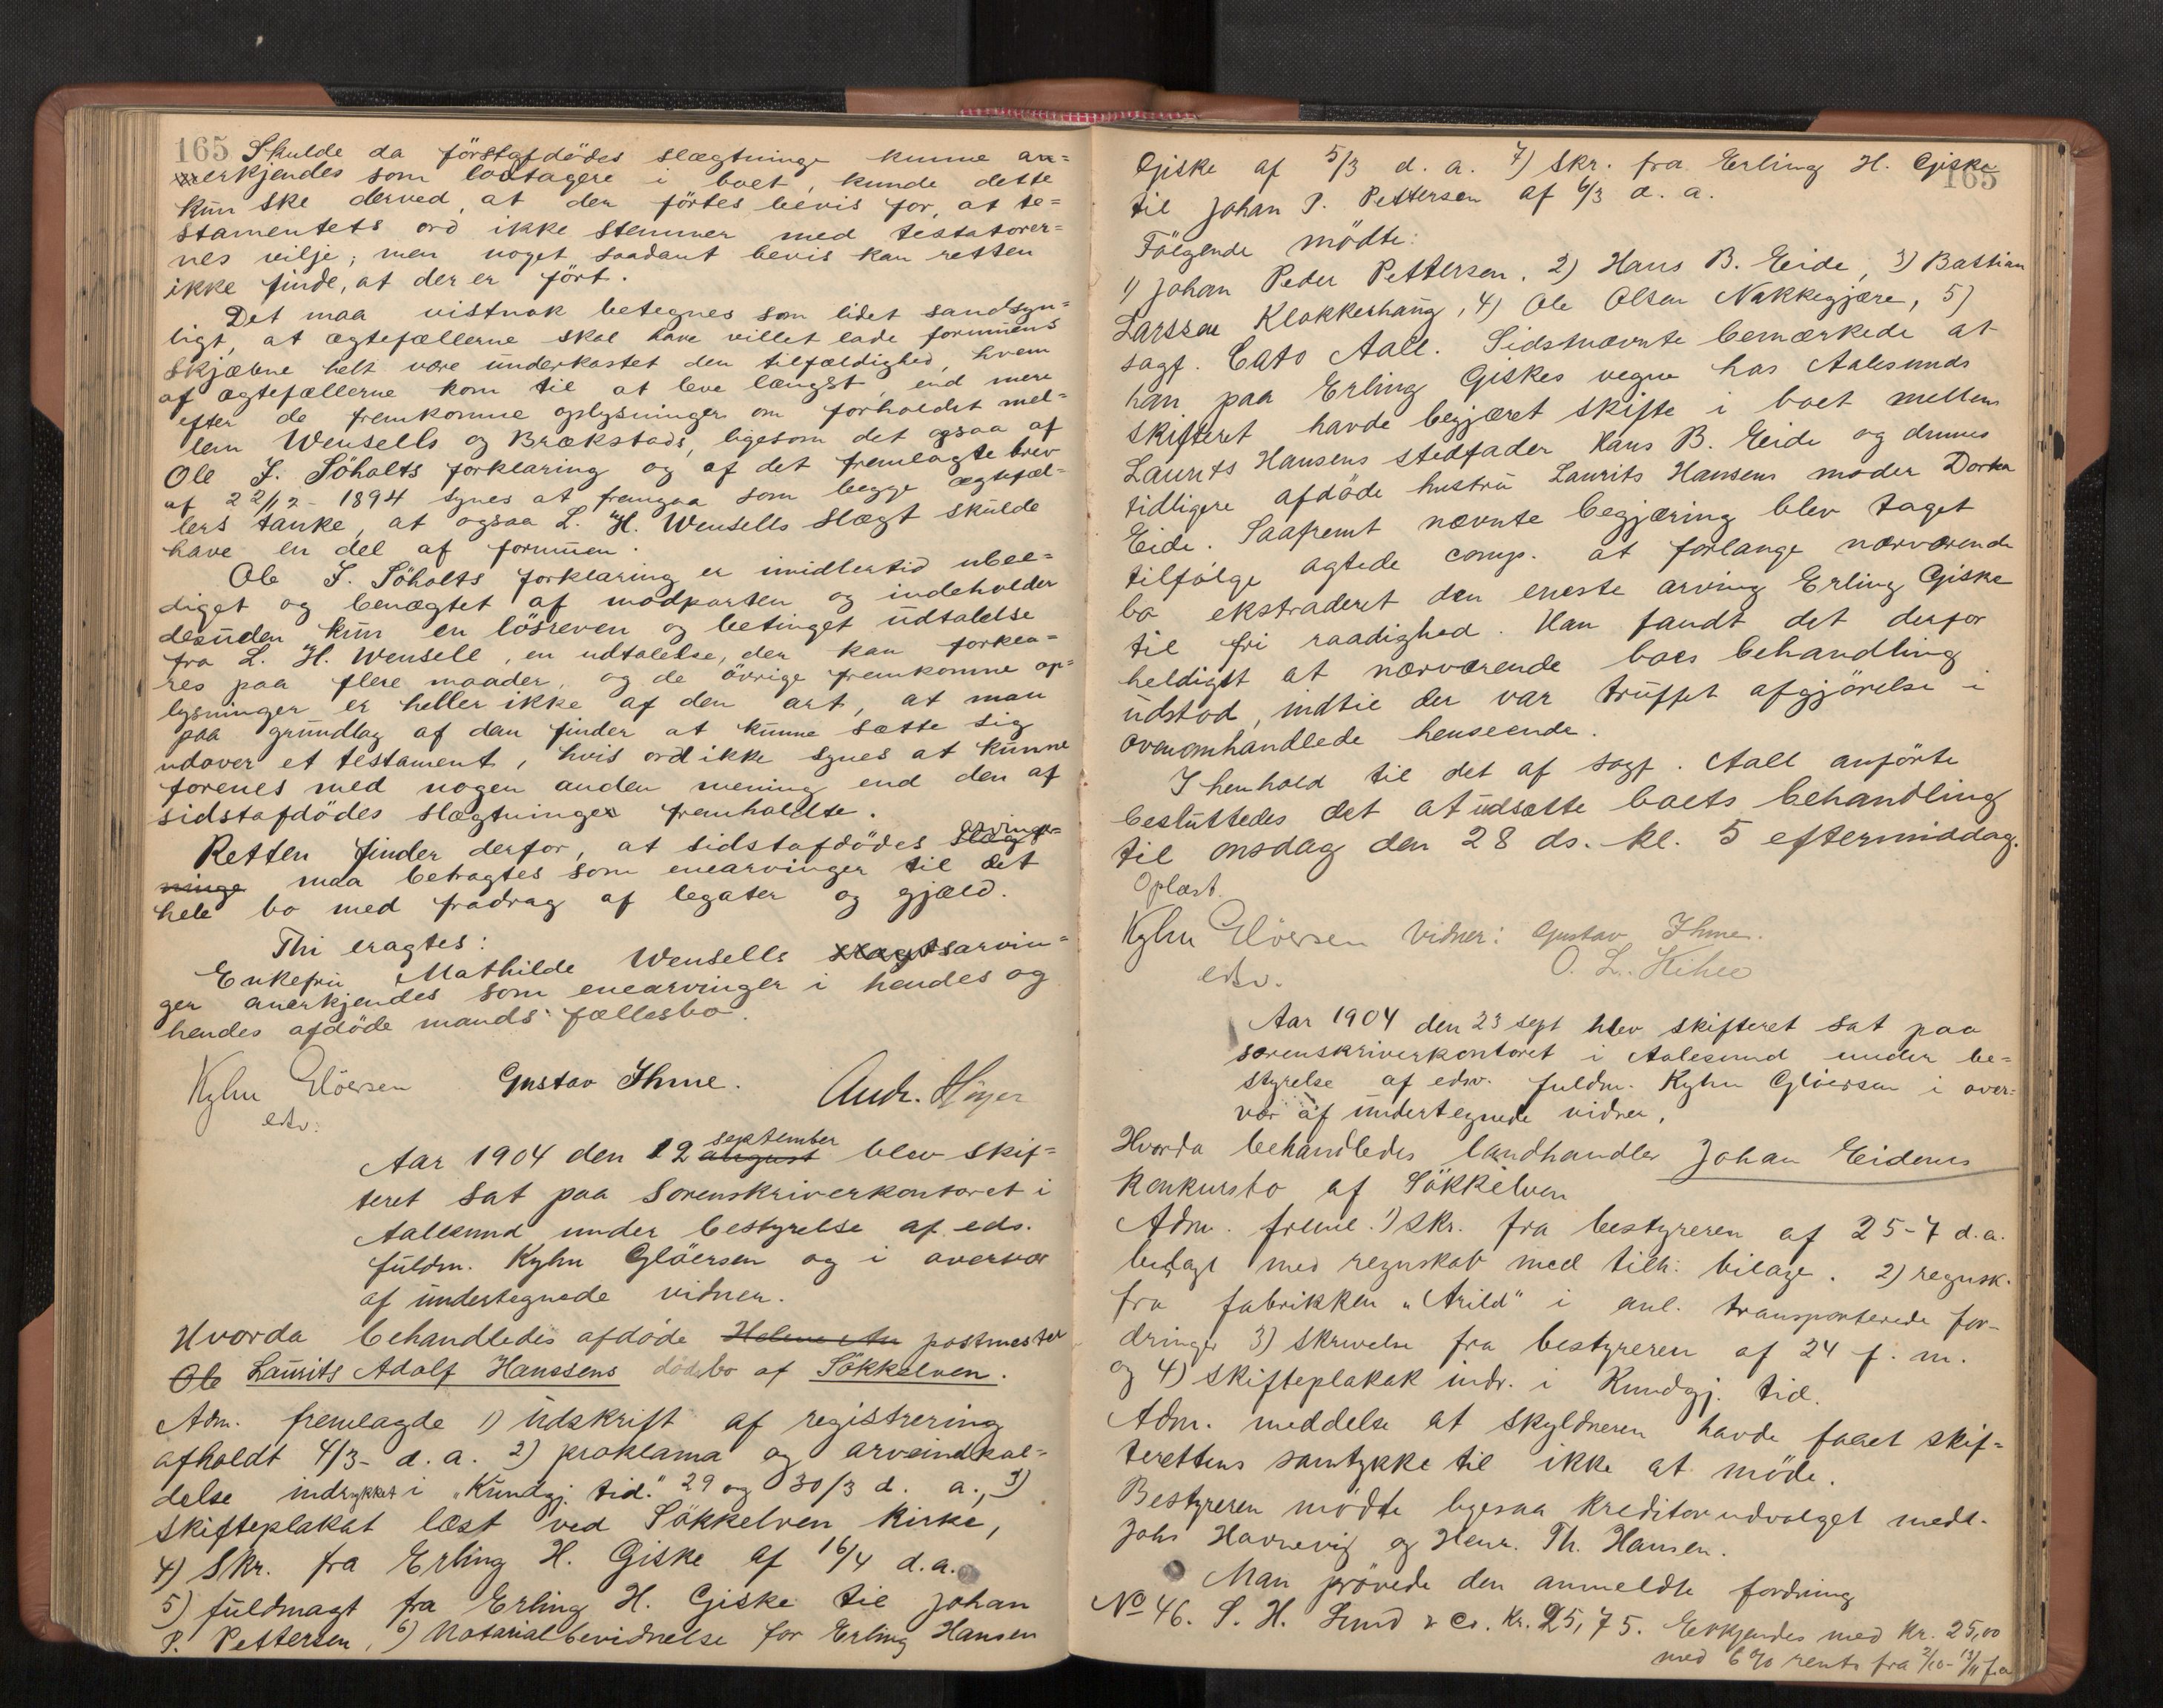 165 Skulde da förstafdödes slægtninge kunne an=
erkjendes som lodtagere i boet, kunde dette
kun ske derved, at der förtes bevis for, at te=
stamentets ord ikke stemmer med testatorer=
nes vilje; men noget saadant bevis kan retten
ikke finde, at der er fört.
Det maa vistnok betegnes som lidet sandsyn=
ligt, at ægtefællerne skal have villet lade formuens
skjæbne helt være underkastet den tilfældighed, hvem
af ægtefællerne kom til at leve længst, end mere
efter de fremkomne oplysninger om forholdet mel=
lem Wensells og Brækstads, ligesom det ogsaa af
Ole J. Söholts forklaring og af det fremlagte brev
af 22/12-1894 synes at fremgaa som begge ægtefæl=
lers tanke, at ogsaa L. H. Wensells slægt skulde
have en del af formuen.
Ole J. Söholts forklaring er imidlertid ubee=
diget og benægtet af modparten og indeholder
desuden kun en lösreven og betinget udtalelse
fra L. H. Wensell, en udtalelse, der kan forkla=
res paa flere maader, og de övrige fremkomne op=
lysninger er heller ikke af den art, at man
paa grundlag af dem finder at kunne sætte sig
udover et testament, hvis ord ikke synes at kunne
forenes med nogen anden mening end den af
sidstafdödes slægtninger fremholdte.
Retten finder derfor, at sidstafdödes slægt= arvinger
ninge maa betragtes som enearvinger til det
hele bo med fradrag af legater og gjæld.
Thi eragtes:
Enkefru Mathilde Wensells slægtsarvin=
ger anerkjendes som enearvinger i hendes og
hendes afdöde mands fællesbo.
Kyhn Glöersen Gustav Ihme. Andr. Höyer
edsv.
september
Aar 1904 den 12 august blev skif=
teret sat paa Sorenskriverkontoret i
Aalesund under bestyrelse af eds.
fuldm. Kyhn Glöersen og i overvær
af undertegnede vidner.
Hvorda behandledes afdøde postmester
Ole Laurits Adolf Hanssens dödsbo af Sökkelven.
Adm. fremlagde 1) Udskrift af registrering
afholdt 4/3- d. a. 2) proklama og arveindkal=
delse indrykket i "Kundgj. tid." 29 og 30/3 d. a., 3)
skifteplakat læst ved Sökkelven kirke,
4) Skr. fra Erling H. Giske af 16/4 d.a.
5) fuldmagt fra Erling H. Giske til Johan
P. Pettersen, 6) Notarialbevidnelse for Erling Hansen
165
Giske af 5/3 d. a. 7) Skr. fra Erling H. Giske
til Johan P. Pettersen af 6/3 d. a.
Fölgende mödte:
1) Johan Peder Pettersen, 2) Hans B. Eide, 3) Bastian
Larssen Klokkerhaug, 4) Ole Olsen Nakkegjære, 5)
sagf. Cato Aall. Sidstnævnte bemærkede at
han paa Erling Giskes vegne hos Aalesunds
skifteret havde begjæret skifte i boet mellem
Laurits Hansens stedfader Hans B. Eide og dennes
tidligere afdöde hustru Laurits Hansens moder Dorthea
Eide. Saafremt nævnte begjæring blev taget
tilfölge agtede comp. at forlange nærværende
bo ekstraderet den eneste arving Erling Giske
til fri raadighed. Han fandt det derfor
heldigst at nærværende boes behandling
udstod, indtil der var truffet afgjörelse i
ovenomhandlede henseende.
I henhold til det af sagf. Aall anförte
besluttedes det at udsætte boets behandling
til onsdag den 28 ds. kl. 5 eftermiddag.
Oplæst.
Kyhn Glöersen Vidner: Gustav Ihme.
edsv. O. L.
Aar 1904 den 23 sept blev skifteret sat paa
sorenskriverkontoret i Aalesund under be=
styrelse af edsv. fuldm. Kyhn Glöersen i over=
vær af undertegnede vidner.
Hvorda behandledes landhandler Johan Eidems
konkursbo af Sökkelven
Adm. freml. 1) Skr. fra bestyreren af 25-7 d.a.
bilagt med regnskab med tilh. bilage. 2) regnsk.
fra fabrikken "Arild" i anl. transporterede for-
dringer 3) skrivelse fra bestyreren af 24 f. m.
og 4) skifteplakat indr. i Kundgj. tid.
Adm. meddelte at skyldneren havde faaet skif=
terettens samtykke til ikke at möde.
Bestyreren mödte ligesaa kreditorudvalget medl.
Johs Havnevig og Henr. Th. Hansen.
Man prövede den anmeldte fordring
No 46. S. H. Lund & Co. Kr. 25,75. Erkjendes med Kr. 25,00
med 6% rente fra 2/10-13/11 f.a.